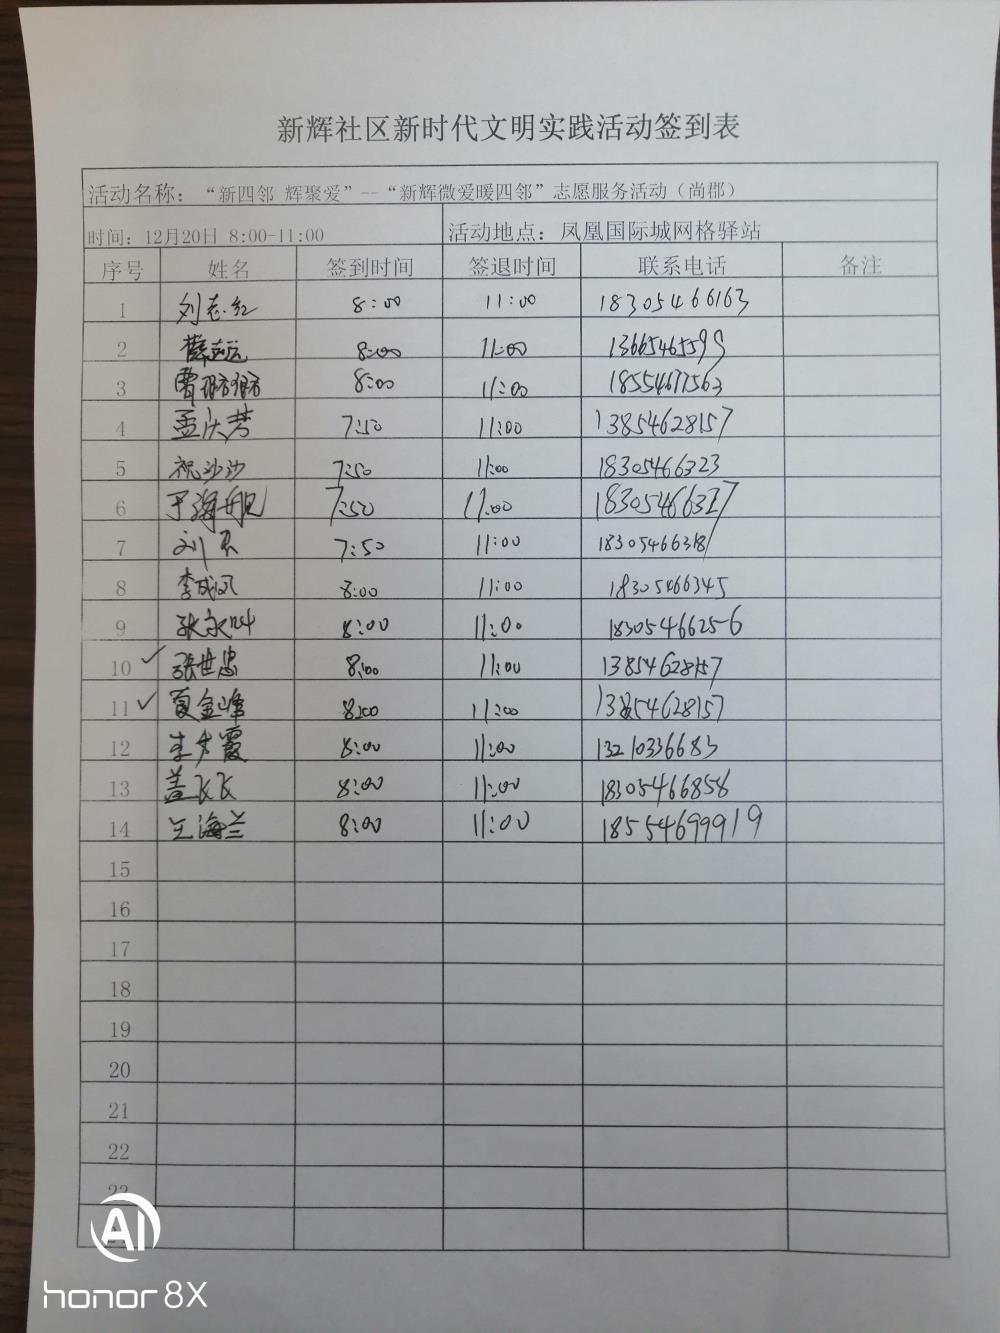 新辉社区新时代文明实践活动签到表
活动名称：“新四邻 辉聚爱”--“新辉微爱暖四邻”志愿服务活动（尚郡）
时间：12月20日 8:00-11:00 活动地点：凤凰国际城网格驿站
序号 姓名 签到时间 签退时间 联系电话 备注
1 刘志红 8:00 11:00 18305466163
2 8:00 11:00 13665465599
3 曹明明 8:00 11:00 18554677563
4 孟庆芳 7:50 11:00 13854628157
5 祝沙沙 7:50 11:00 18305466323
6 于海舰 7:50 11:00 18305466327
7 7:50 11:00 18305466318
8 李成凤 8:00 11:00 18305466345
9 8:00 11:00 18305466256
10 ✓ 张世忠 8:00 11:00 13854628157
11 ✓ 夏金峰 8:00 11:00 13854628157
12 8:00 11:00 13210336683
13 盖飞飞 8:00 11:00 18305466856
14 王海兰 8:00 11:00 18554699919
15
16
17
18
19
20
21
22
23
AI
honor 8X